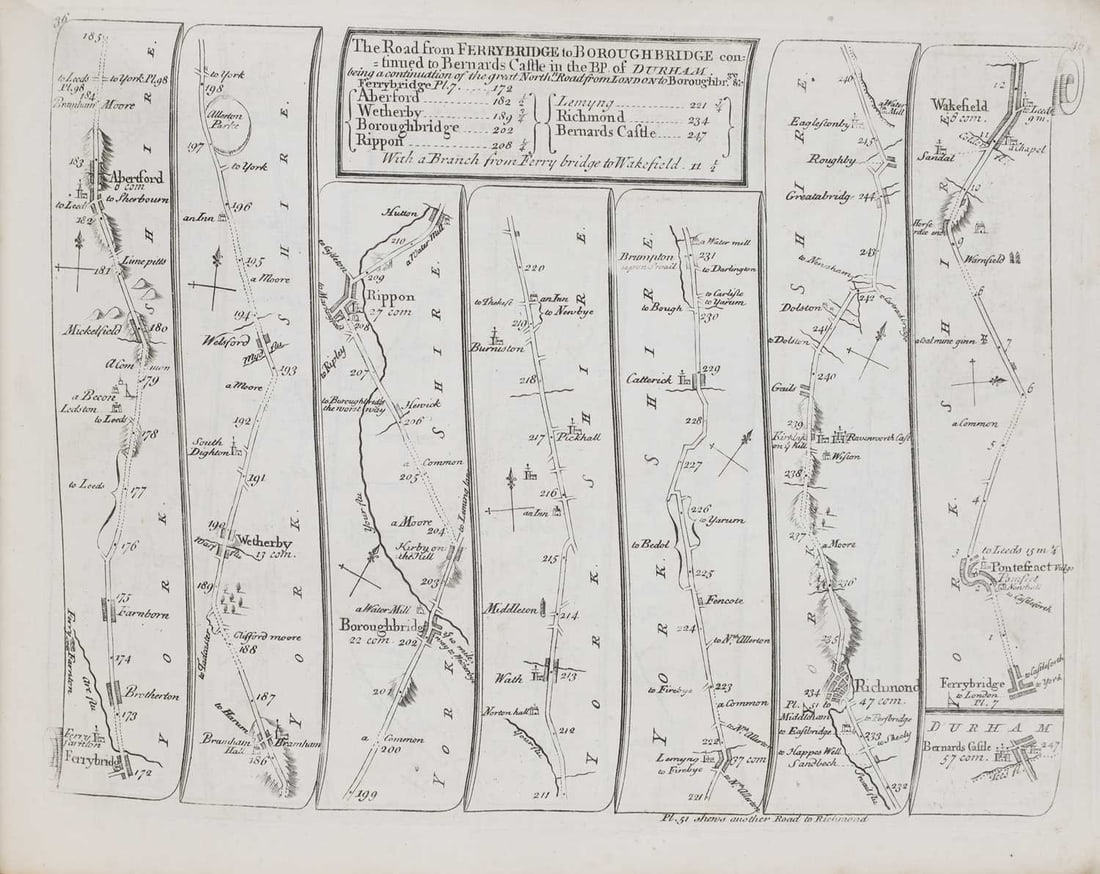 36
The Road from FERRYBRIDGE to BOROUGHBRIDGE con=
=tinued to Bernards Castle in the BP. of DURHAM.
being a continuation of the great North.n Road from LONDON to Boroughbr.
Ferrybridge Pl.7 172
Aberford 182 1/2
Wetherby 189 3/4
Boroughbridge 202
Rippon 208 1/4
Lemyng 221 3/4
Richmond 234
Bernards Castle 247
With a Branch from Ferry bridge to Wakefield. 11 1/4
185
to Leeds Pl.98
to York Pl.98
184
Bramham Moore
183
Aberford
8 com
to Leeds
to Sherbourn
182
Lime pitts
181
Mickelfield
180
A Com mon
179
a Becon
Ledston
to Leeds
178
to Leeds
177
176
175
Farnborn
174
Brotherton
173
Ferry Farnton
Ferrybridg
172
YORKSHIRE
to York
198
Allerton Parke
197
to York
196
an Inn
195
a Moore
194
Walsford
193
a Moore
192
South Dighton
191
190
Wetherby
13 com.
189
Clifford moore
to Tadcaster
188
187
to Harum
Bramham Hall
Bramham
186
YORKSHIRE
Hutton
210
a Water Mill
209
Rippon
27 com
208
to Ripley
207
to Boroughbridg the worst way
Hewick
206
a Common
205
a Moore
204
Kirby on the Hill
Your flu
203
a Water Mill
Boroughbridg
22 com
202
201
a Common
200
199
YORKSHIRE
220
to Thekesto
an Inn
to Newbye
219
Burniston
218
217
Pickhall
216
an Inn
215
Middleton
214
Wath
213
Norton hall
212
Your flu.
211
YORKSHIRE
Brumpton
a Water mill
231
to Darlington
to Carlisle
to Yarum
to Bough
230
Catterick
229
228
227
226
to Yarum
to Bedol
225
Fencote
224
to Nth. Allerton
to Firebye
223
a Common
222
to Nth. Allerton
Lemyng
37 com
to Firebye
221
to Nth. Allerton
YORKSHIRE
246
a Water Mill
Eaglestonby
245
Roughby
Greatabridg
244
243
to Newsham
242
Dolston
241
to Dolston
240
Gails
239
Ravenworth Cast
Wiston
238
237
a Moore
236
235
Richmond
47 com.
234
Pl. 51 to Middleham
to Easbridge
233
to Sheoly
to Happes Well
Sandbeck
232
Swail flu
YORKSHIRE
Pl. 51 shews another Road to Richmond
12
Wakefield
8 com.
to Leeds 9 m.
11
Chapel
Sandal
10
9
Warnfield
8
a Coal mine ginn
7
6
a Common
5
4
3
to Leeds 15 m 1/4
Pontefract vulgo Pomfret
to Castleforth
1
to Castleforth
Ferrybridg
to London Pl. 7
to York
YORKSHIRE
DURHAM
Bernards Castle
57 com.
247
Tees fl.